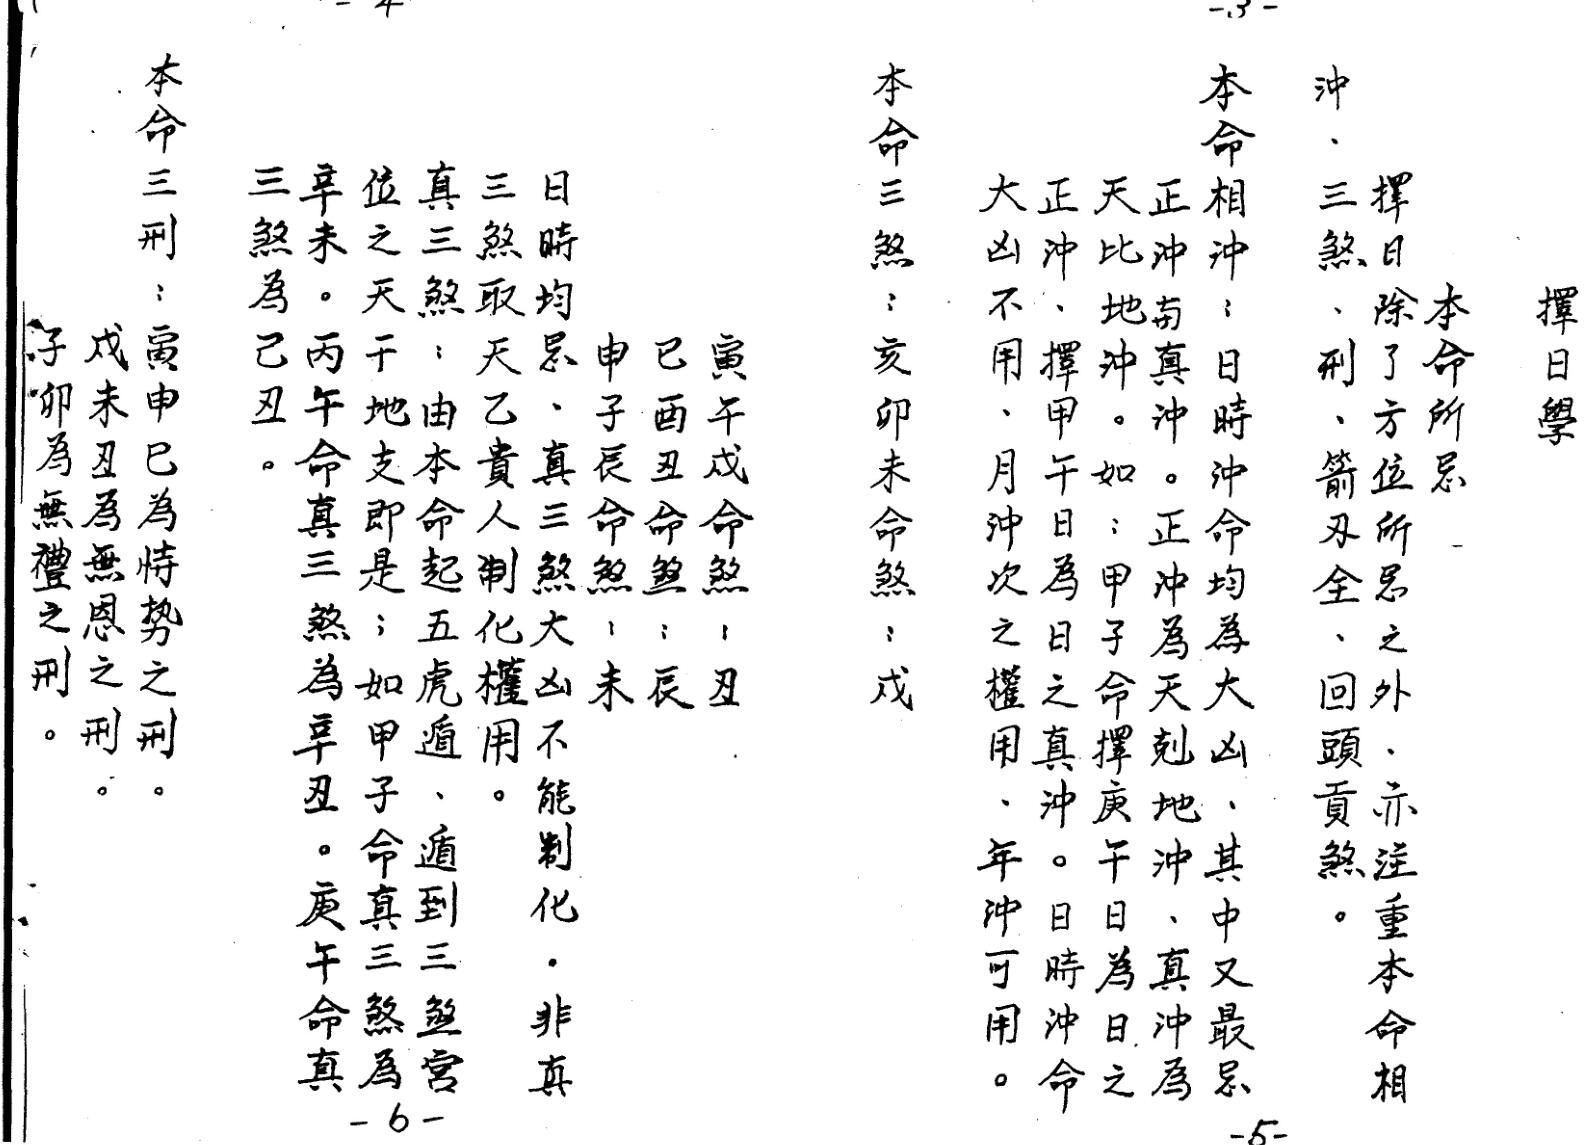 -3-
擇日學
本命所忌
擇日除了方位所忌之外．亦注重本命相
沖、三煞、刑、箭刃全、回頭貢煞。
本命相沖：日時沖命均為大凶、其中又最忌
正沖與真沖。正沖為天剋地沖、真沖為
天比地沖。如：甲子命擇庚午日為日之
正沖、擇甲午日為日之真沖。日時沖命
大凶不用、月沖次之權用、年沖可用。
本命三煞：亥卯未命煞：戌
-5-
-4
寅午戌命煞：丑
巳酉丑命煞：辰
申子辰命煞：未
日時均忌、真三煞大凶不能制化．非真
三煞取天乙貴人制化權用。
真三煞：由本命起五虎遁、遁到三煞宮
位之天干地支即是；如甲子命真三煞為
辛未。丙午命真三煞為辛丑。庚午命真
三煞為己丑。
本命三刑：寅申巳為恃勢之刑。
戌未丑為無恩之刑。
子卯為無禮之刑。
-6-